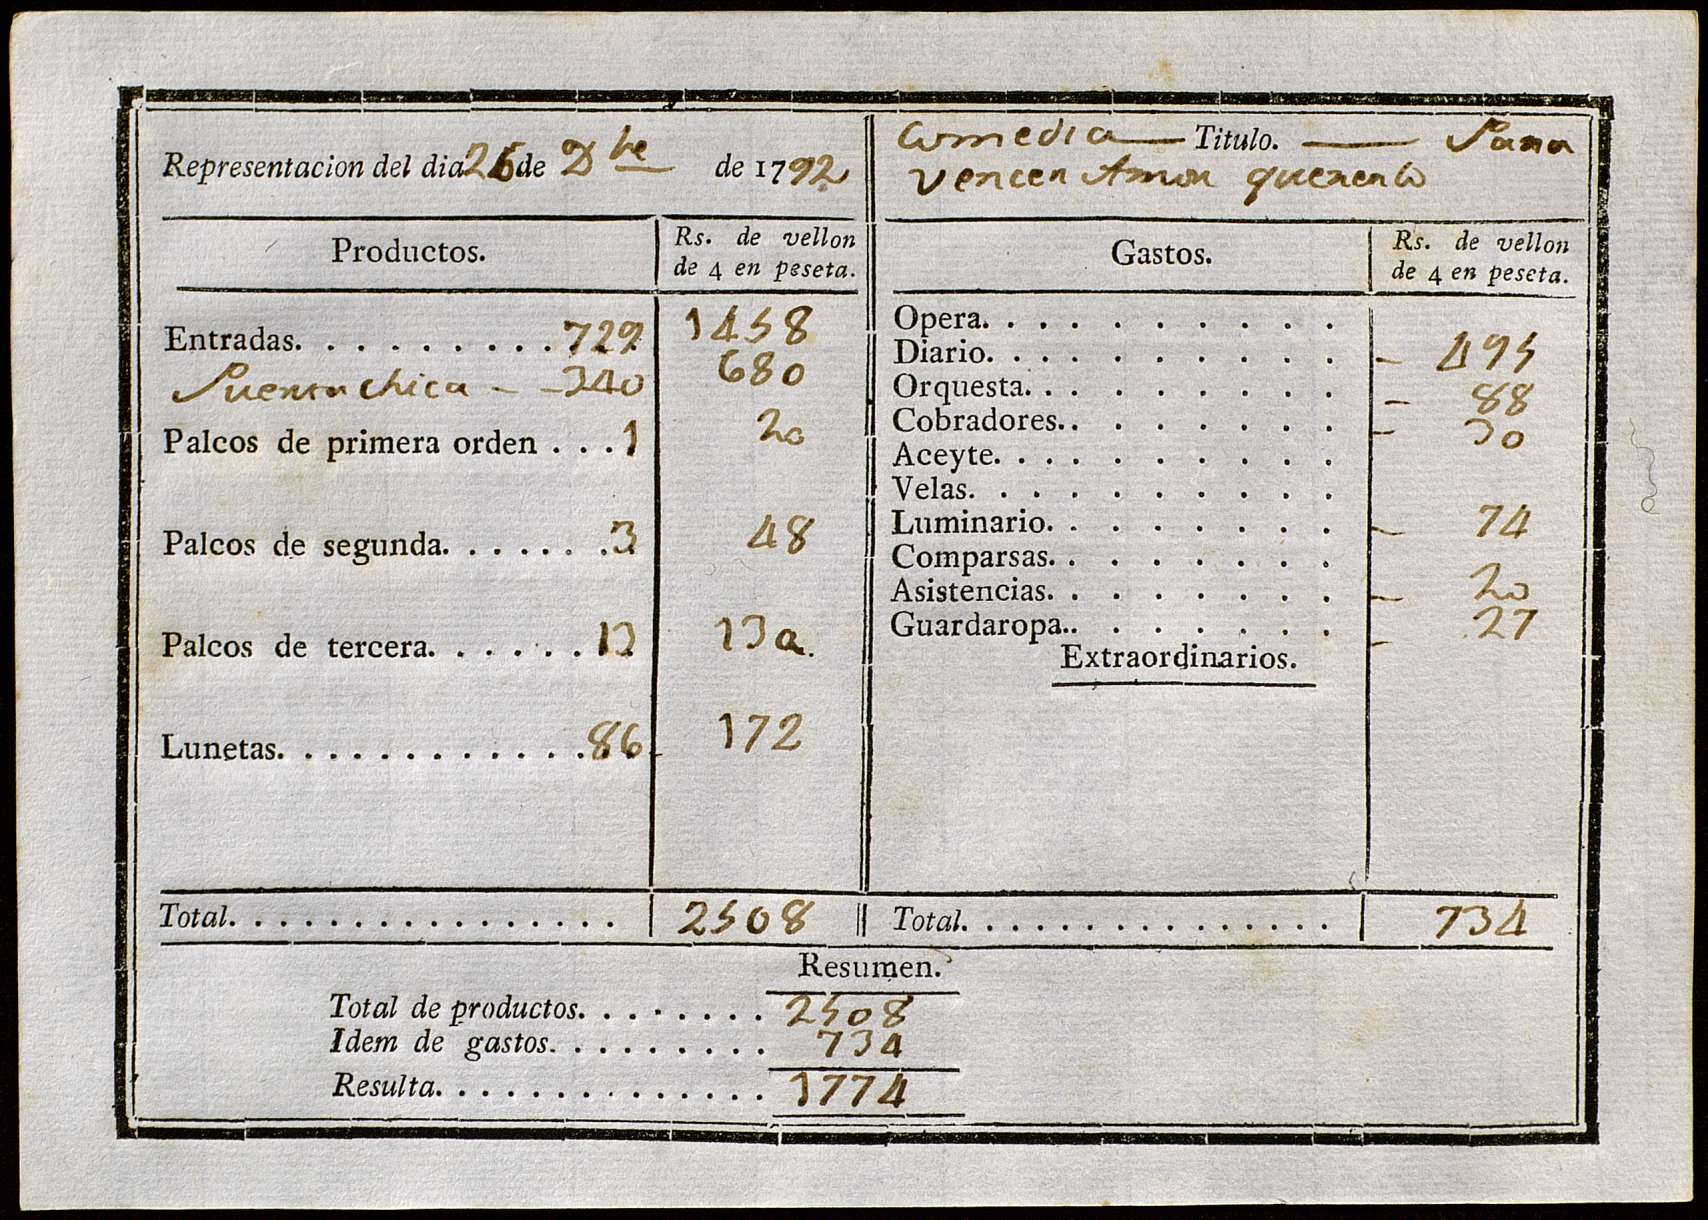 Representacion del dia 26 de Dbre de 1792
Comedia — Titulo. — Para
vencer Amor quererlo
Productos. Rs. de vellon
de 4 en peseta.
Entradas. . . . . . . . . . 729 1458
Puerta chica - - 340 680
Palcos de primera orden . . . 1 20
Palcos de segunda. . . . . . . 3 48
Palcos de tercera. . . . . . 13 130.
Lunetas. . . . . . . . . . . . . 86 172
Total. . . . . . . . . . . . . . . . 2508
Gastos. Rs. de vellon
de 4 en peseta.
Opera. . . . . . . . . .
Diario. . . . . . . . . . - 495
Orquesta. . . . . . . . . - 88
Cobradores. . . . . . . . - 30
Aceyte. . . . . . . . . .
Velas. . . . . . . . . .
Luminario. . . . . . . . - 74
Comparsas. . . . . . . .
Asistencias. . . . . . . . - 20
Guardaropa. . . . . . . . - 27
Extraordinarios.
Total. . . . . . . . . . . . . . . . 734
Resumen.
Total de productos. . . . . . . . 2508
Idem de gastos. . . . . . . . . 734
Resulta. . . . . . . . . . . . . . 1774